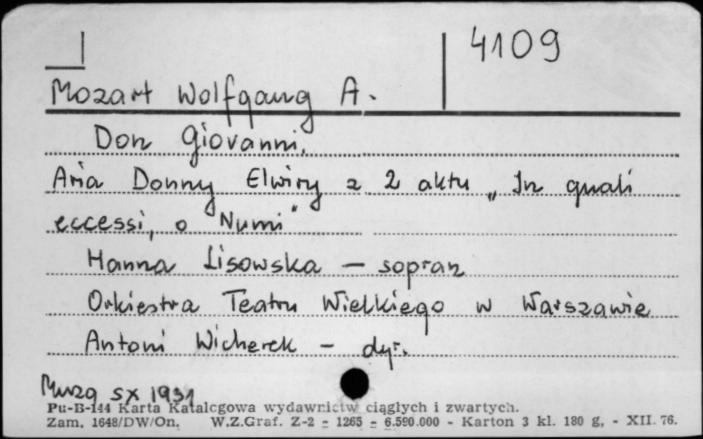 4109
Mozart Wolfgang A.
Don Giovanni.
Aria Donny Elwiry z 2 aktu „In quali
eccessi, o Numi"
Hanna Lisowska – sopran
Orkiestra Teatru Wielkiego w Warszawie
Antoni Wicherek – dyr.
Muza SX 1931
Pu-B-144 Karta Katalogowa wydawnictw ciągłych i zwartych.
Zam. 1648/DW/On. W.Z.Graf. Z-2 - 1265 - 6.590.000 - Karton 3 kl. 180 g. - XII. 76.